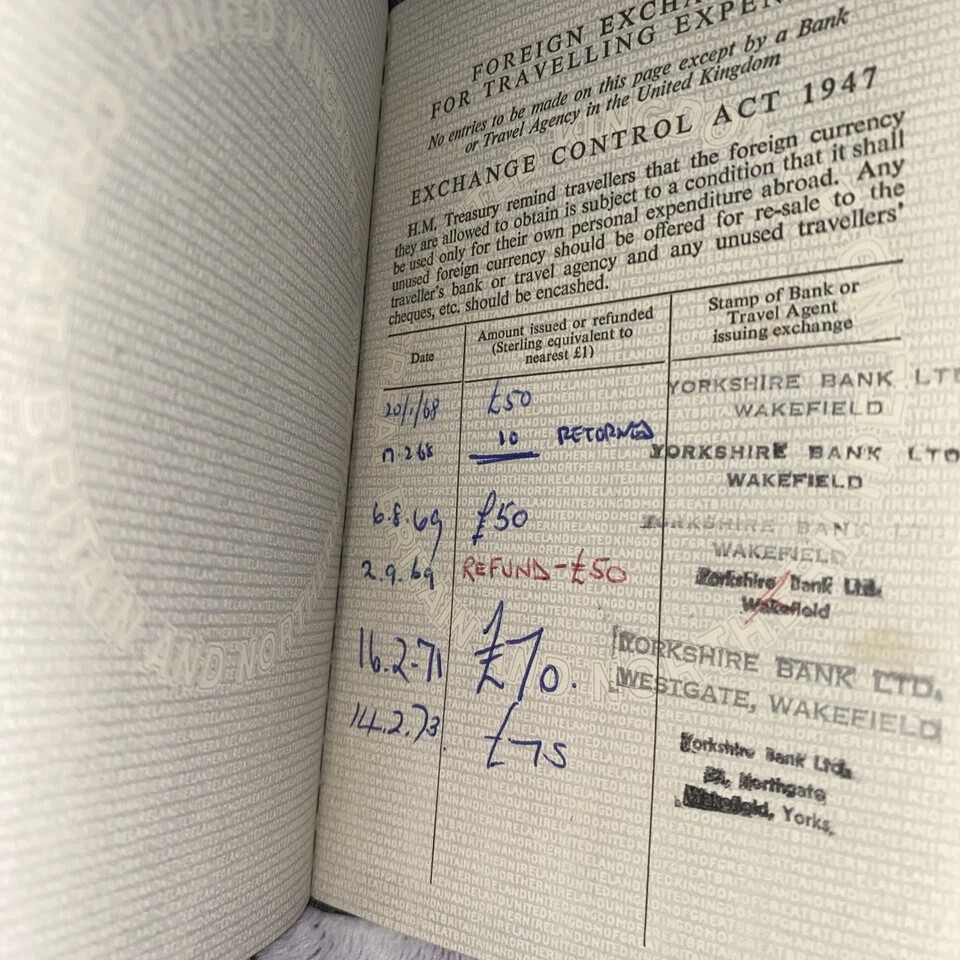 FOREIGN EXCHA
FOR TRAVELLING EXPEN
No entries to be made on this page except by a Bank
or Travel Agency in the United Kingdom
EXCHANGE CONTROL ACT 1947
H.M. Treasury remind travellers that the foreign currency
they are allowed to obtain is subject to a condition that it shall
be used only for their own personal expenditure abroad. Any
unused foreign currency should be offered for re-sale to the
traveller's bank or travel agency and any unused travellers'
cheques, etc. should be encashed.
Date
Amount issued or refunded
(Sterling equivalent to
nearest £1)
Stamp of Bank or
Travel Agent
issuing exchange
20/1/68 £50 YORKSHIRE BANK LT
WAKEFIELD
10 RETORNED YORKSHIRE BANK LTD
WAKEFIELD
6.8.69 £50 YORKSHIRE BAN
WAKEFIELD
2.9.69 REFUND-£50 Yorkshire Bank Ltd.
Wakefield
16.2-71 £70. YORKSHIRE BANK LTD.
WESTGATE, WAKEFIELD
14.2.73. £75 Yorkshire Bank Ltd.
Northgate
Wakefield, Yorks.